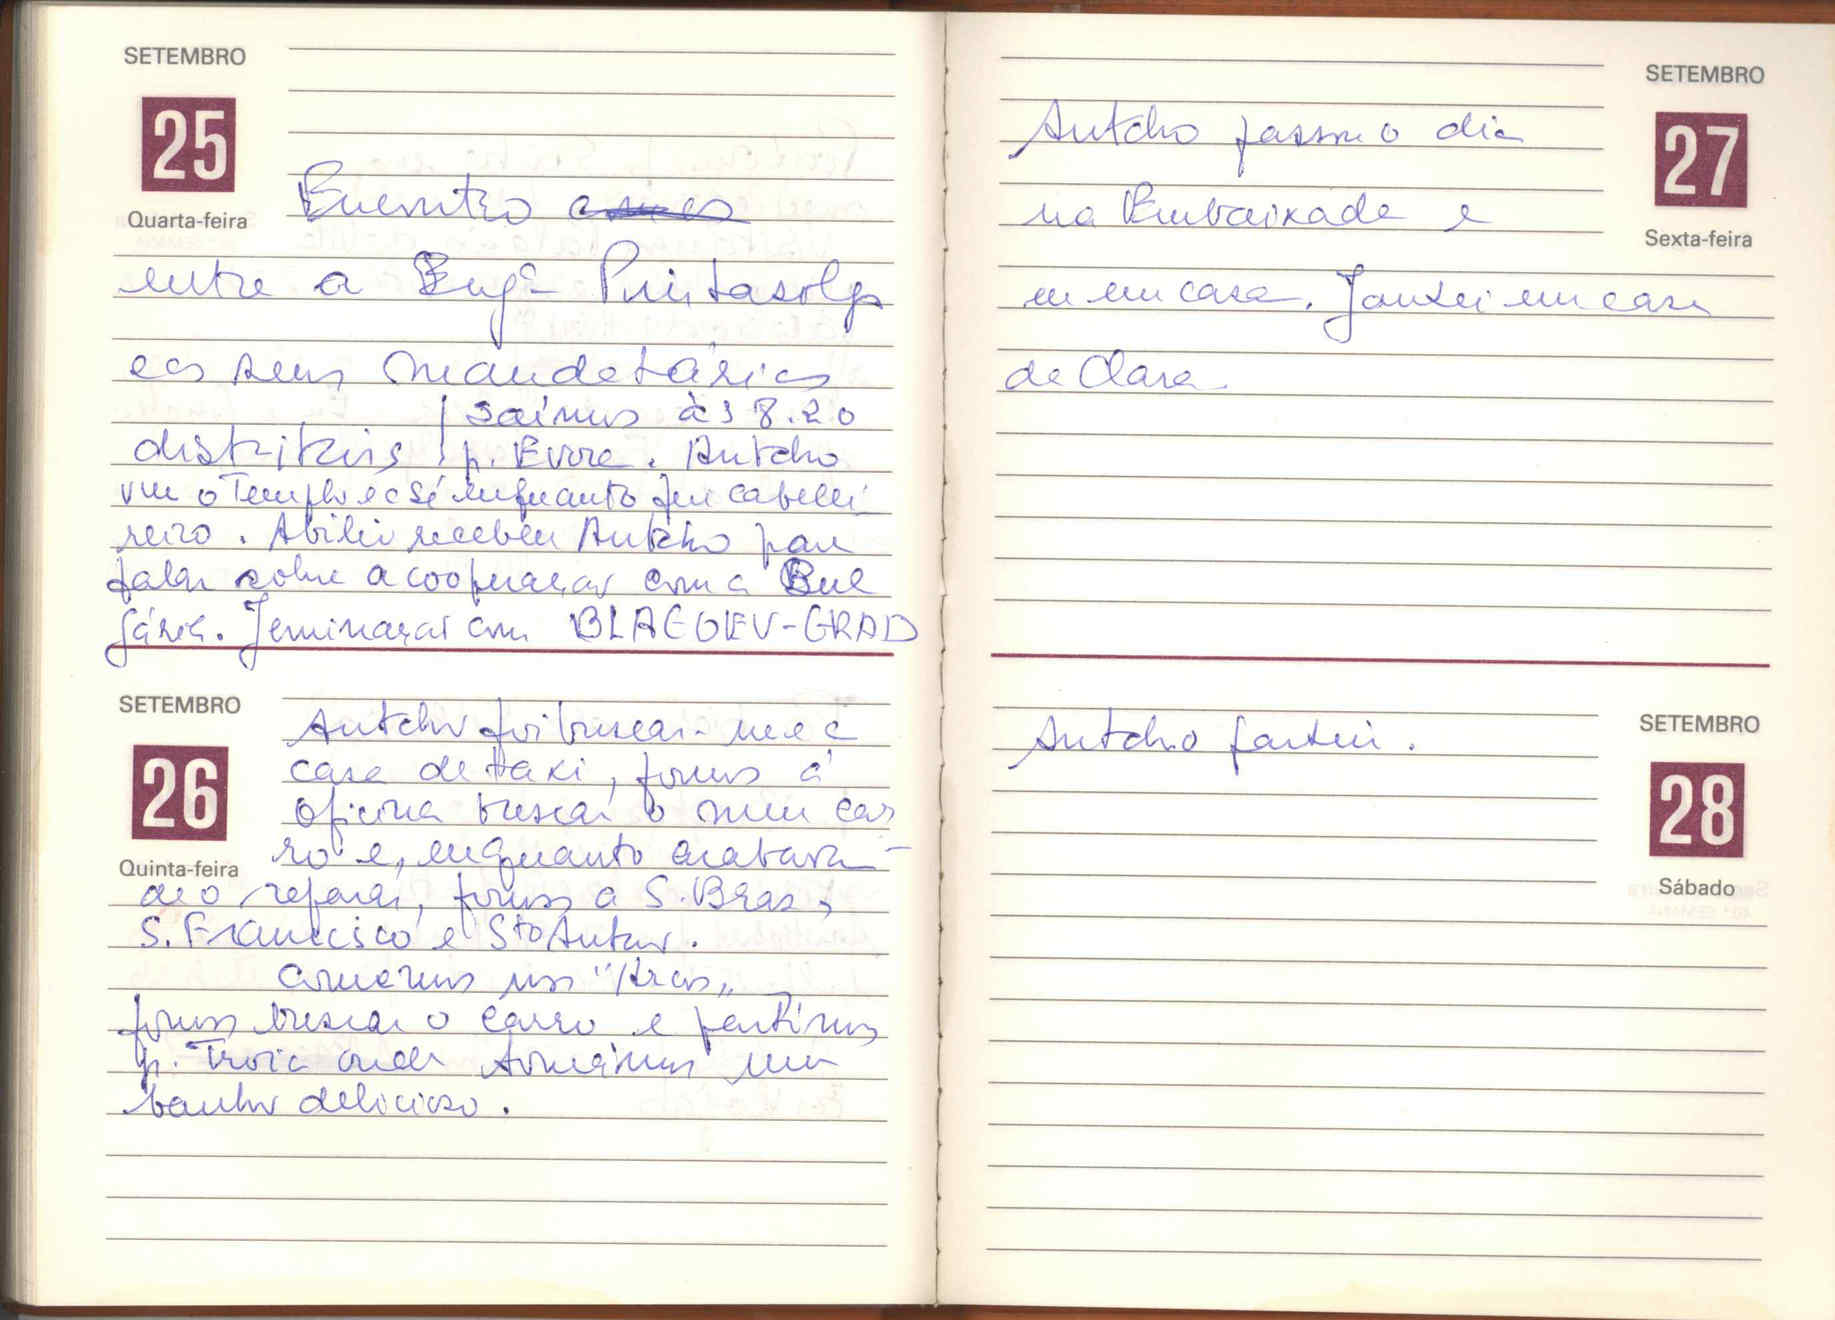 SETEMBRO
25
Quarta-feira
Encontro
entre a Engª Pintasilgo
e os seus mandatários
distritais | Saímos às 8.20
p. Évora. Antcho
viu o Templo e a Sé enquanto fui cabelei
reiro. Abílio recebeu Antcho para
falar sobre a cooperação com a Bul
gária. Geminação com BLAGOEV-GRAD
SETEMBRO
26
Quinta-feira
Antcho foi buscar-me a
casa de taxi, fomos à
oficina buscar o meu car
ro e, enquanto acabavam
de o reparar, fomos a S. Braz,
S. Francisco e Sto Antão.
Comemos nos "Arcos"
fomos buscar o carro e partimos
p. Troia onde tomámos um
banho delicioso.
SETEMBRO
27
Sexta-feira
Antcho passou o dia
na Embaixada e
eu em casa. Jantei em casa
de Clara.
SETEMBRO
28
Sábado
Antcho partiu.